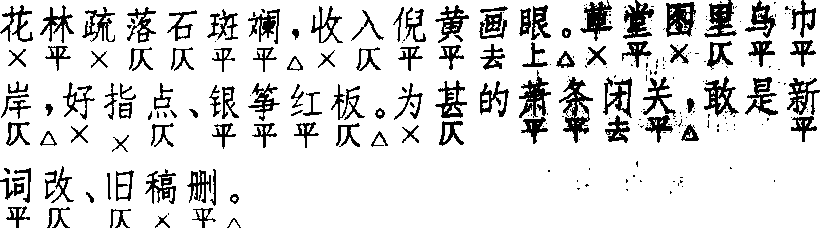 花林疏落石斑斓，收入倪黄画眼。草堂图里乌巾
× 平 × 仄 仄 平 平 △ × 仄 平 平 去 上 △ × 平 × 仄 平 平
岸，好指点、银筝红板。为甚的萧条闭关，敢是新
仄 △ × × 仄 平 平 平 仄 △ × 仄 平 平 去 平 △ 平
词改、旧稿删。
平 仄 仄 × 平 △